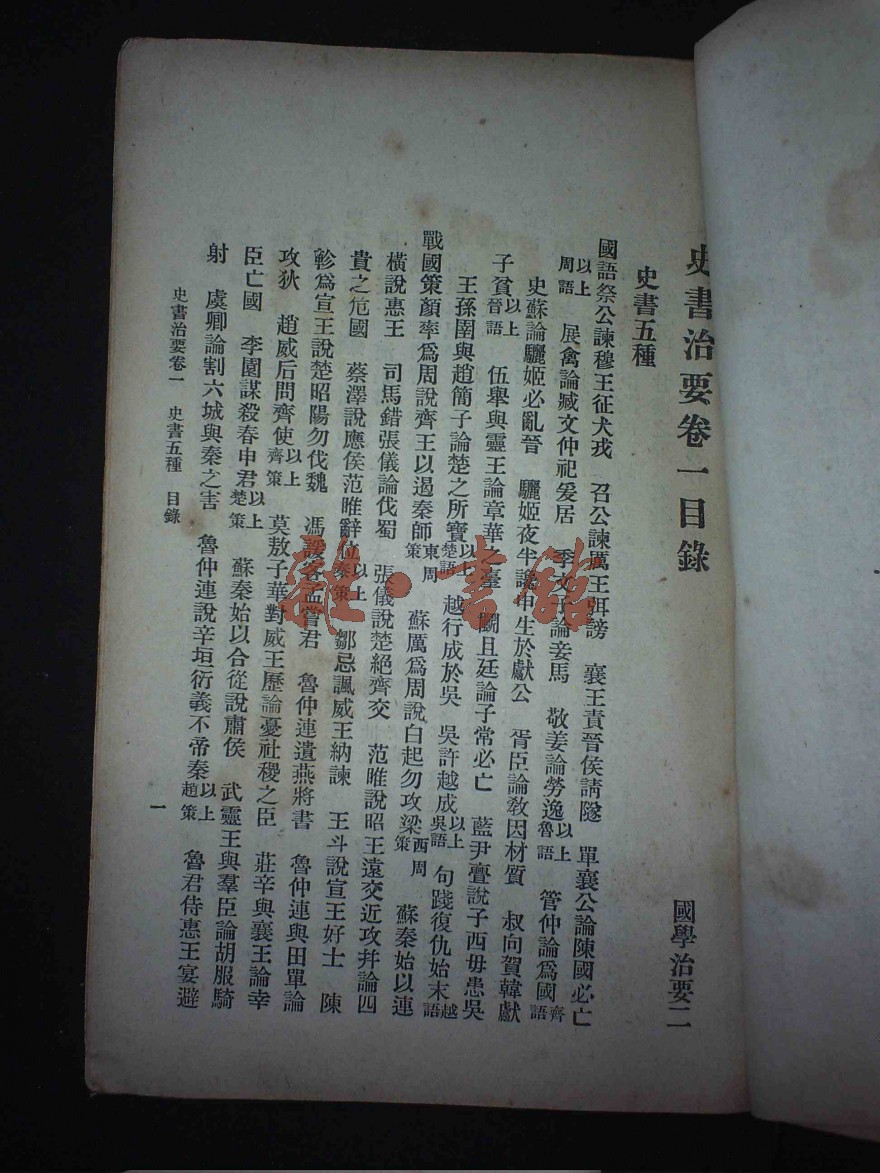 史書治要卷一目錄
國學治要二
史書五種
國語祭公諫穆王征犬戎 召公諫厲王弭謗 襄王責晉侯請隧 單襄公論陳國必亡
以上周語 展禽論臧文仲祀爰居 季文子論妾馬 敬姜論勞逸以上魯語 管仲論爲國齊語
史蘇論驪姬必亂晉 驪姬夜半讒申生於獻公 胥臣論敎因材質 叔向賀韓獻
子貧以上晉語 伍舉與靈王論章華之臺 鬭且廷論子常必亡 藍尹亹說子西毋患吳
王孫圉與趙簡子論楚之所寶以上楚語 越行成於吳 吳許越成以上吳語 句踐復仇始末越語
戰國策顏率爲周說齊王以遏秦師東周策 蘇厲爲周說白起勿攻梁西周策 蘇秦始以連
橫說惠王 司馬錯張儀論伐蜀 張儀說楚絕齊交 范睢說昭王遠交近攻幷論四
貴之危國 蔡澤說應侯范睢辭位以上秦策 鄒忌諷威王納諫 王斗說宣王好士 陳
軫爲宣王說楚昭陽勿伐魏 馮諼客孟嘗君 魯仲連遺燕將書 魯仲連與田單論
攻狄 趙威后問齊使以上齊策 莫敖子華對威王歷論憂社稷之臣 莊辛與襄王論幸
臣亡國 李園謀殺春申君以上楚策 蘇秦始以合從說肅侯 武靈王與羣臣論胡服騎
射 虞卿論割六城與秦之害 魯仲連說辛垣衍義不帝秦以上趙策 魯君侍惠王宴避
史書治要卷一 史書五種 目錄
一
龍·書館